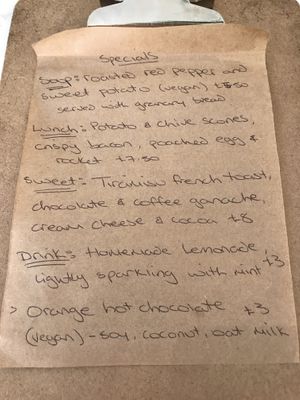 Specials
Soup: roasted red pepper and
sweet potato (vegan)
served with granary bread
Lunch: Potato & chive scones,
crispy bacon, poached egg &
rocket £7.50
Sweet: Tiramisu french toast,
chocolate & coffee ganache,
cream cheese & cocoa £8
Drink: Homemade Lemonade,
lightly sparkling with mint £3
> Orange hot chocolate £3
(vegan) - soy, coconut, oat milk